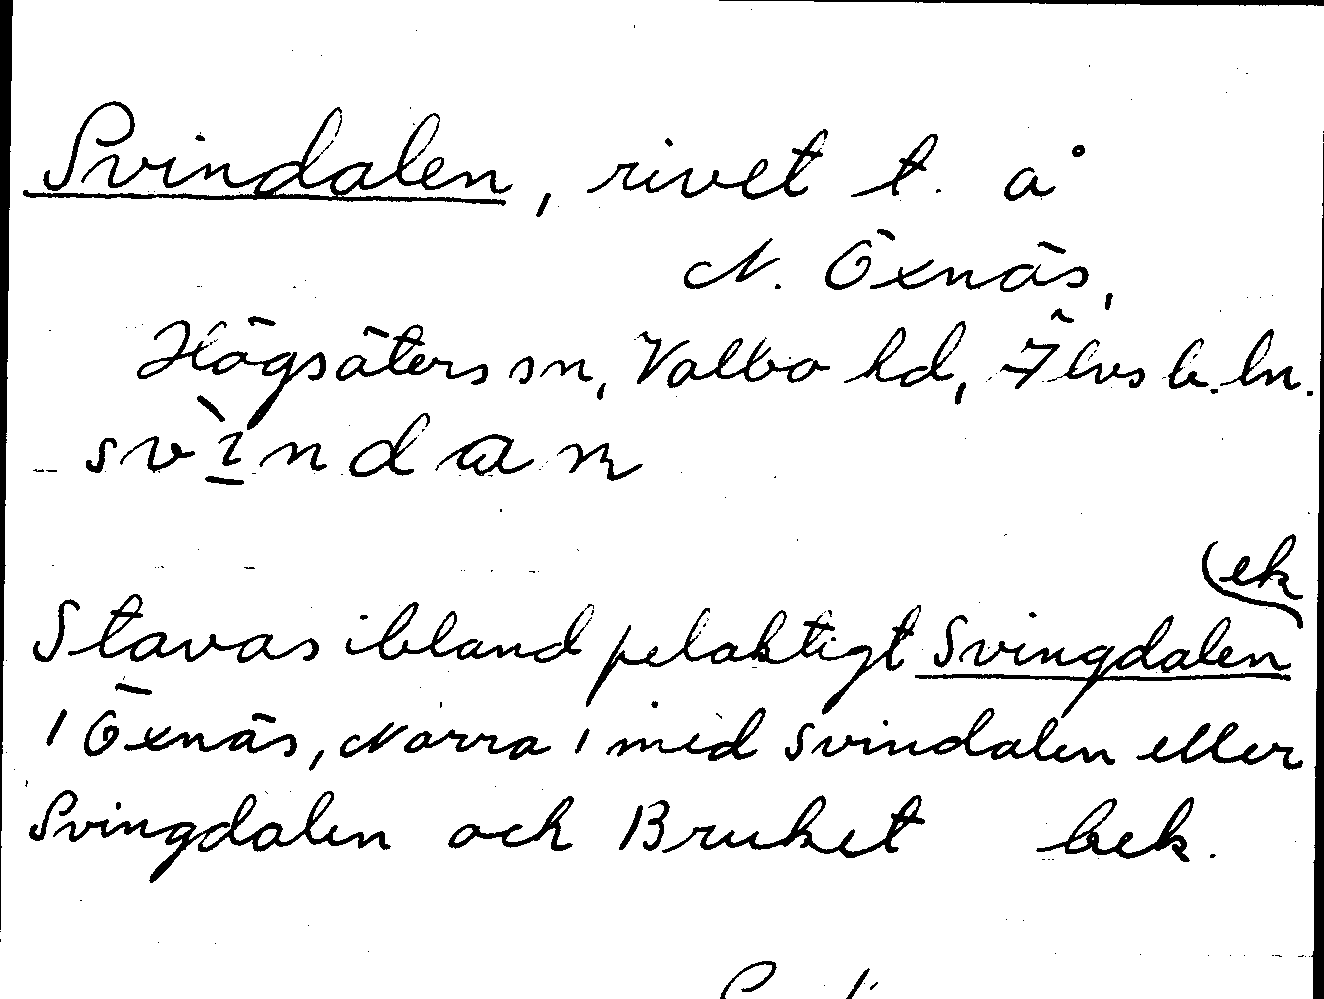 Svindalen, rivet t. å
N. Öxnäs,
Högsäters sn, Valbo hd, Älvsb. ln.
svìndan
(ek
Stavas ibland felaktigt Svingdalen
1 Öxnäs, Norra 1 med Svindalen eller
Svingdalen och Bruket bek.